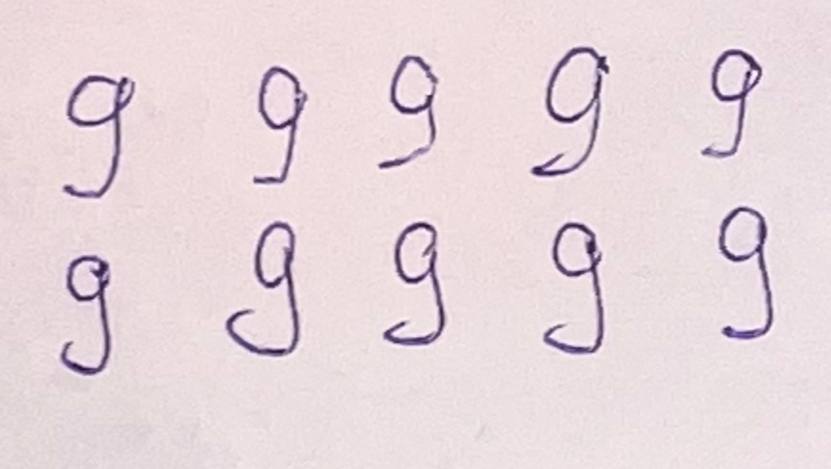 9 9 9 9 9
9 9 9 9 9